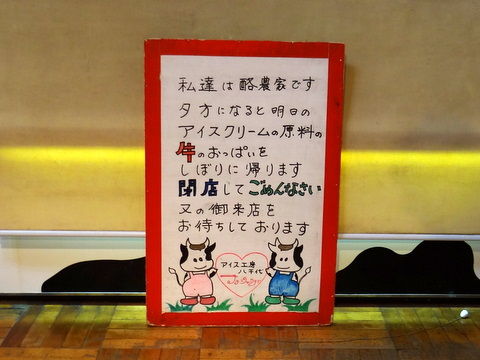 私達は酪農家です
夕方になると明日の
アイスクリームの原料の
牛のおっぱいを
しぼりに帰ります
閉店してごめんなさい
又の御来店を
お待ちしております
アイス工房
八千代